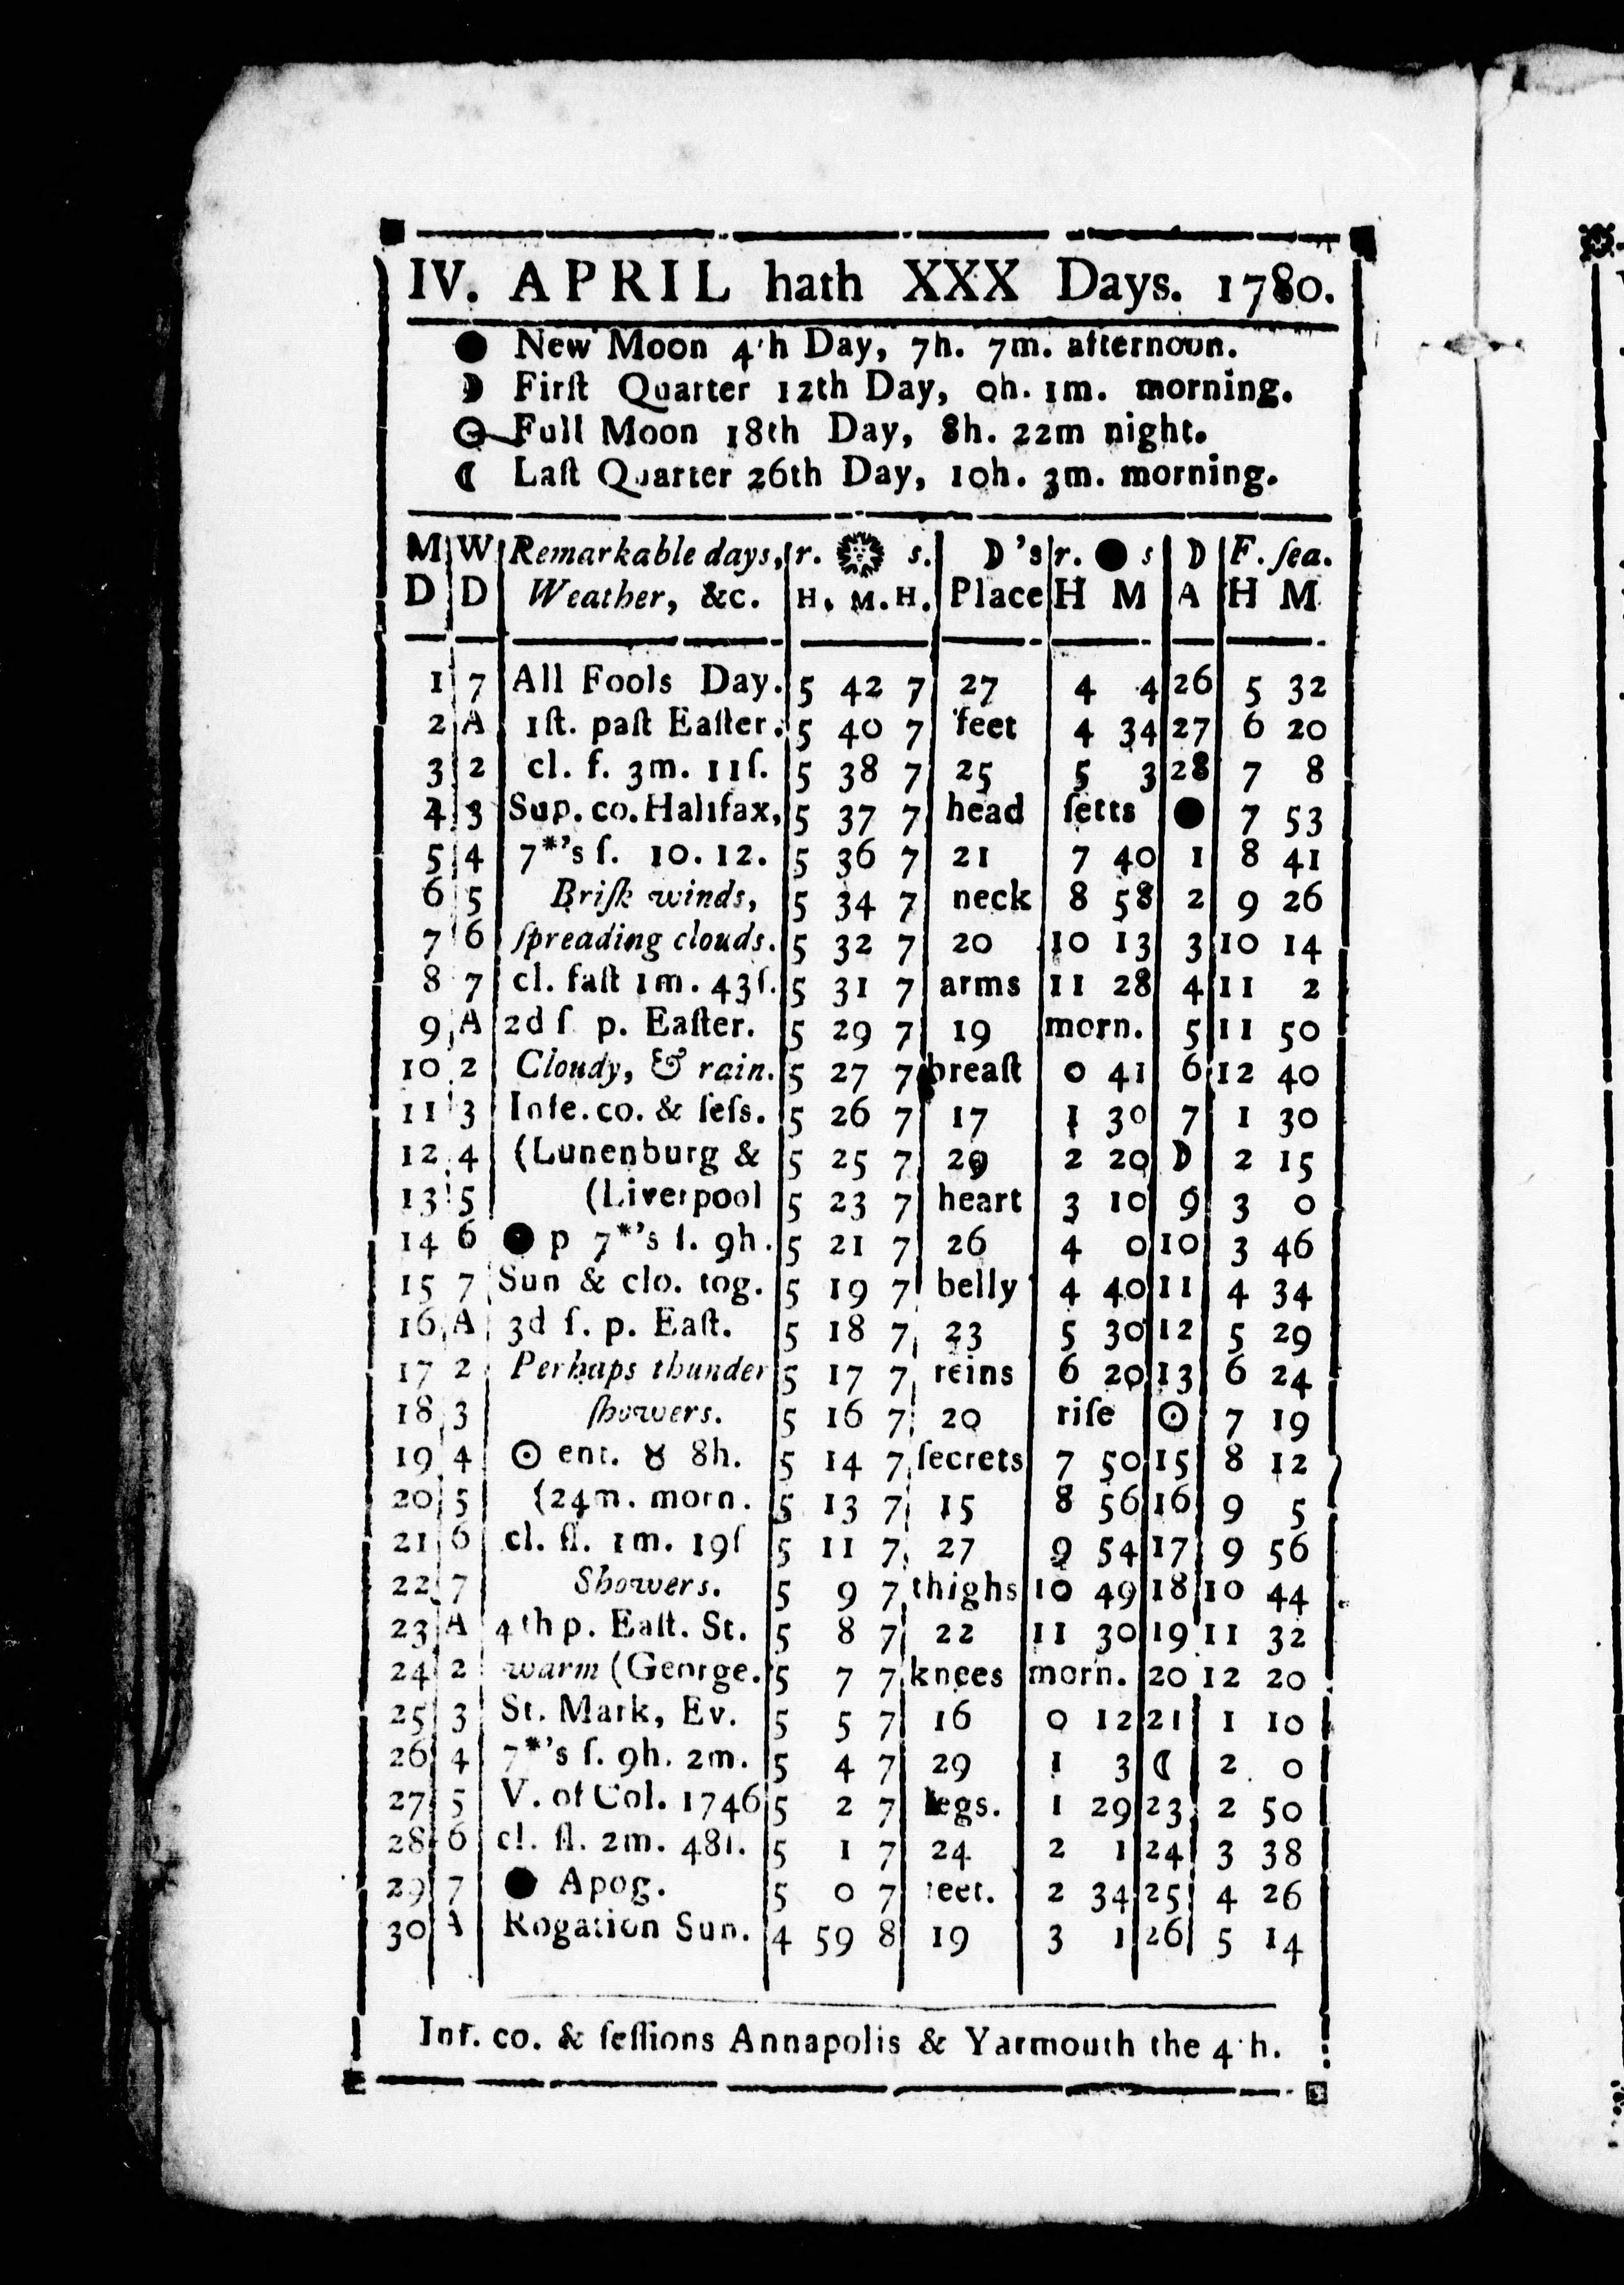 IV. APRIL hath XXX Days. 1780.
● New Moon 4th Day, 7h. 7m. afternoon.
☽ Firſt Quarter 12th Day, 0h. 1m. morning.
☉ Full Moon 18th Day, 8h. 22m night.
☾ Laſt Quarter 26th Day, 10h. 3m. morning.
M W Remarkable days, r. ☀ s. ☽'s r. ● s ☽ F. ſea.
D D Weather, &c. H. M. H. Place H M A H M
1 7 All Fools Day. 5 42 7 27 4 4 26 5 32
2 A 1ſt. paſt Eaſter. 5 40 7 feet 4 34 27 6 20
3 2 cl. f. 3m. 11ſ. 5 38 7 25 5 3 28 7 8
4 3 Sup. co. Halifax, 5 37 7 head ſetts ● 7 53
5 4 7*'s ſ. 10. 12. 5 36 7 21 7 40 1 8 41
6 5 Briſk winds, 5 34 7 neck 8 58 2 9 26
7 6 ſpreading clouds. 5 32 7 20 10 13 3 10 14
8 7 cl. faſt 1m. 43ſ. 5 31 7 arms 11 28 4 11 2
9 A 2d ſ p. Eaſter. 5 29 7 19 morn. 5 11 50
10 2 Cloudy, & rain. 5 27 7 breaſt 0 41 6 12 40
11 3 Infe. co. & ſeſs. 5 26 7 17 1 30 7 1 30
12 4 (Lunenburg & 5 25 7 29 2 20 ☽ 2 15
13 5 (Liverpool 5 23 7 heart 3 10 9 3 0
14 6 ● p 7*'s ſ. 9h. 5 21 7 26 4 0 10 3 46
15 7 Sun & clo. tog. 5 19 7 belly 4 40 11 4 34
16 A 3d ſ. p. Eaſt. 5 18 7 23 5 30 12 5 29
17 2 Perhaps thunder 5 17 7 reins 6 20 13 6 24
18 3 ſhowers. 5 16 7 20 riſe ☉ 7 19
19 4 ☉ ent. ♉ 8h. 5 14 7 ſecrets 7 50 15 8 12
20 5 (24m. morn. 5 13 7 15 8 56 16 9 5
21 6 cl. ſl. 1m. 19ſ 5 11 7 27 9 54 17 9 56
22 7 Showers. 5 9 7 thighs 10 49 18 10 44
23 A 4th p. Eaſt. St. 5 8 7 22 11 30 19 11 32
24 2 warm (George. 5 7 7 knees morn. 20 12 20
25 3 St. Mark, Ev. 5 5 7 16 0 12 21 1 10
26 4 7*'s ſ. 9h. 2m. 5 4 7 29 1 3 ☾ 2 0
27 5 V. of Col. 1746 5 2 7 legs. 1 29 23 2 50
28 6 cl. ſl. 2m. 48ſ. 5 1 7 24 2 1 24 3 38
29 7 ● Apog. 5 0 7 feet. 2 34 25 4 26
30 A Rogation Sun. 4 59 8 19 3 1 26 5 14
Inf. co. & ſeſſions Annapolis & Yarmouth the 4th.